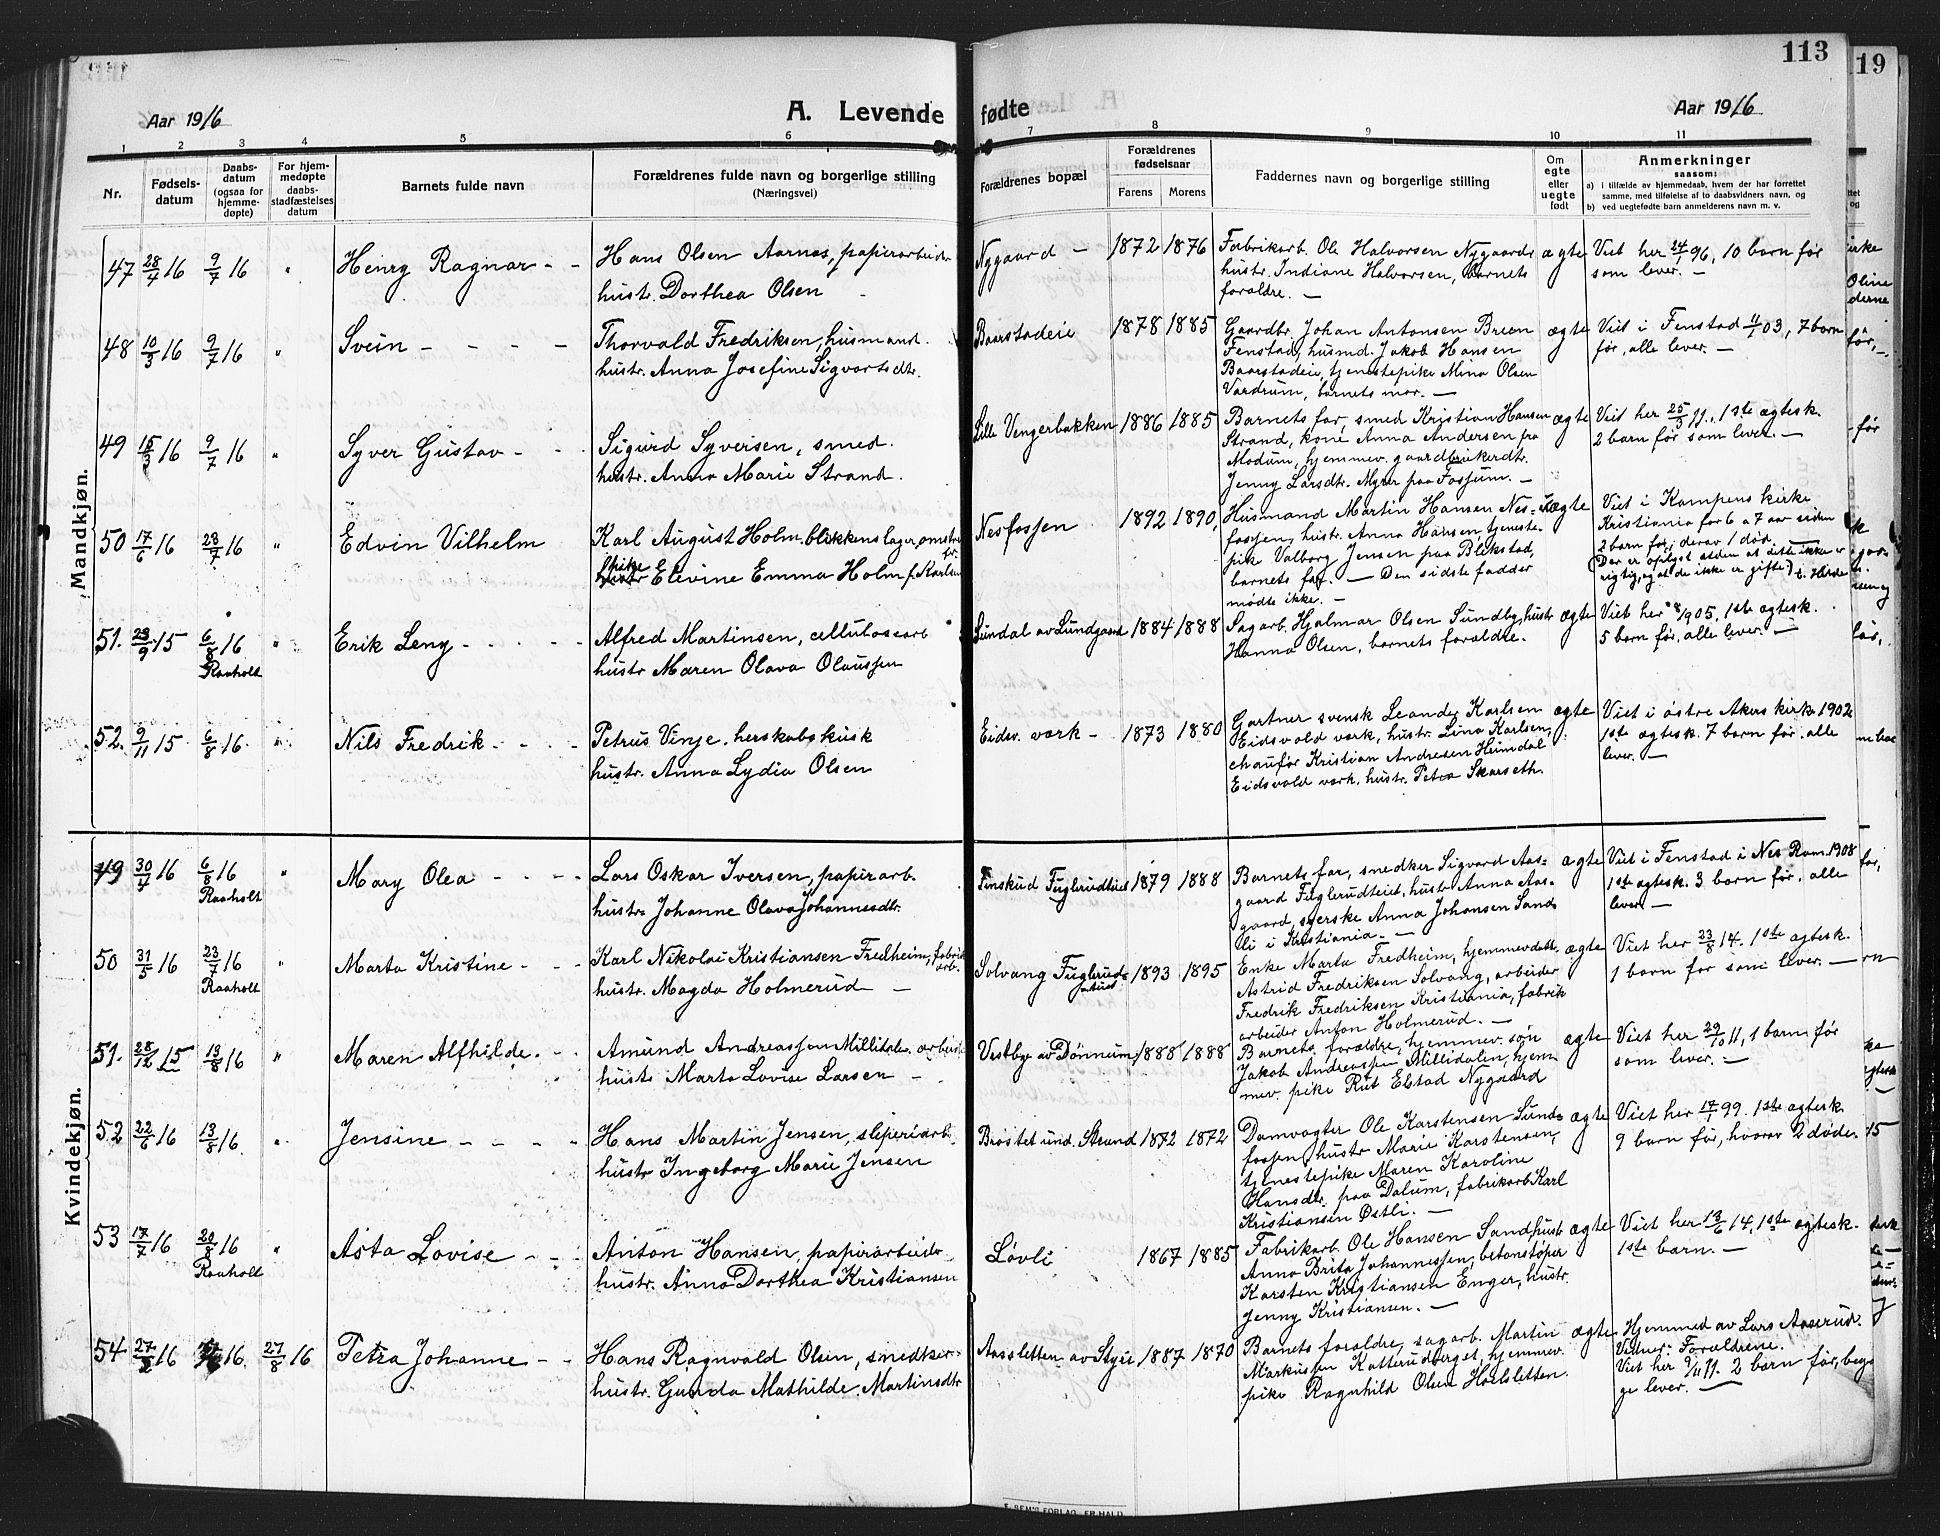 113
19
Aar 1916
A. Levende fødte
Aar 1916
1 2 3 4 5 6 7 8 9 10 11
Nr.
Fødsels-
datum
Daabs-
datum
(ogsaa for
hjemme-
døpte)
For hjem-
medøpte
daabs-
stadfæstelses
datum
Barnets fulde navn
Forældrenes fulde navn og borgerlige stilling
(Næringsvei)
Forældrenes bopæl
Forældrenes
fødselsaar
Farens Morens
Faddernes navn og borgerlige stilling
Om
egte
eller
uegte
født
Anmerkninger
saasom:
a) i tilfælde av hjemmedaab, hvem der har forrettet
samme, med tilføielse af to daabsvidners navn, og
b) ved uegtefødte barn anmelderens navn m. v.
Mandkjøn.
47 28/4 16 9/7 16 " Henry Ragnar - -
Hans Olsen Aarnes, papirarbeid
hustr. Dorthea Olsen -
Nygaard - 1872 1876
Fabrikarb. Ole Halvorsen Nygaard,
hustr. Indiane Halvorsen, barnets
foraldre. -
ægte
Viet her 24/1 96, 10 barn før
som lever. -
48 10/3 16 9/7 16 " Svein - - - -
Thorvald Fredriksen, husmand.
hustr. Anna Josefine Sigvartsdtr.
Baarstadeie 1878 1885
Gaardbr. Johan Antonsen Breen
Fenstad, husmd. Jakob Hansen
Baarstadeie, tjenestepike Mina Olsen
Vardrum, barnets mor. -
ægte
Viet i Fenstad 11/1 03, 7 barn
før, alle lever. -
49 15/3 16 9/7 16 " Syver Gustav - -
Sigurd Syversen, smed.
hustr. Anna Marie Strand.
Lille Vengerbakken 1886 1885
Barnets far, smed Kristian Hansen
Strand, kone Anna Andersen fra
Modum, hjemmev. gaardbrukerdtr.
Jenny Larsdtr. Myrer paa Fosjum. -
ægte
Viet her 25/3 11. 1ste ægtesk.
2 barn før som lever. -
50 17/6 16 23/7 16 " Edvin Vilhelm
Karl August Holm. blikkenslager,
pike Elevine Emma Holm f. Karlsen
Nesfossen 1892 1890,
Husmand Martin Hansen Nes-
fossen, hustr. Anna Hansen, tjeneste-
pike Valborg Jensen paa Blekstad,
barnets far. - Den sidste fadder
mødte ikke. -
ægte
Viet i Kampens kirke
Kristiania for 6 a 7 aar siden
2 barn før, derav 1 død.
(Der er oplyst siden at dette ikke er
rigtig, og at de ikke er gifte)
51. 23/9 15 6/8 16 " Erik Leny - - - -
Raaholt
Alfred Martinsen, cellulosearb
hustr Maren Olava Olaussen
Sundal av Lundgaard 1884 1888
Sagarb. Hjalmar Olsen Sundby, hustr
Hanna Olsen, barnets foraldre.
ægte
Viet her 8/1 905, 1ste ægtesk.
5 barn før, alle lever. -
52. 9/11 15 6/8 16 " Nils Fredrik - - -
Petrus Vinje. herskabskusk
hustr. Anna Lydia Olsen
Eidsv. værk - 1873 1880
Gartner svensk Leander Karlsen
Eidsvold værk, hustr. Lina Karlsen,
chaufør Kristian Andresen Heimdal
Eidsvold værk, hustr. Petra Skarseth.
ægte
Viet i østre Akers kirke 1902
1ste ægtesk. 7 barn før, alle
lever. -
Kvindekjøn.
49 30/4 16 6/8 16 " Mary Olea - - -
Raaholt
Lars Oskar Iversen, papirarb.
hustr. Johanne Olava Johannesdtr.
Finskud Fuglerudteiet 1879 1888
Barnets far, snedker Sigvard Aas-
gaard Fuglerudteiet, hustr Anna Aas-
gaard, syerske Anna Johansen Sand
li i Kristiania. -
ægte
Viet i Fenstad i Nes Rom. 1908
1ste ægtesk. 3 barn før, alle
lever. -
50 31/5 16 23/7 16 " Marta Kristine - - -
Raaholt
Karl Nikolai Kristiansen Fredheim, fabrik
arb.
hustr. Magda Holmerud -
Solvang Fuglerud- 1893 1895
Enke Marta Fredheim, hjemmev. datt.
Astrid Fredriksen Solvang, arbeider
Fredrik Fredriksen Kristiania, fabrik
arbeider Anton Holmerud. -
ægte
Viet her 23/8 14. 1ste ægtesk.
1 barn før som lever. -
51. 28/12 15 13/8 16 " Maren Alfhilde. - -
Amund Andreassen Millidale. arbeid
hustr Marta Lovise Larsen -
Vestby av Dønnum 1888 1888
Barnets foraldre, hjemmev. søn
Jakob Andreassen Millidalen, hjem
mev. pike Rut Elstad Nygaard
ægte
Viet her 29/10 11, 1 barn før
som lever. -
52 22/6 16 13/8 16 " Jensine - - - -
Hans Martin Jensen, sliperiarb.
hustr Ingeborg Marie Jensen
Brøstet und. Strand 1872 1872
Damvogter Ole Karstensen Sund-
fossen, hustr Marie Karstensen,
tjenestepike Maren Karoline
Hansdtr. paa Dalum, fabrikarb Karl
Kristiansen Østli. -
ægte
Viet her 17/1 99. 1ste ægtesk.
9 barn før, hvorav 2 døde.
53 17/7 16 20/8 16 " Asta Lovise - - -
Raaholt
Anton Hansen, papirarbeider
hustr. Anna Dorthea Kristiansen
Løvli 1867 1885
Fabrikarb. Ole Hansen Sand, hustr
Anna Brita Johannessen, betonstøper
Karsten Kristiansen Enger, hustr.
Jenny Kristiansen. -
ægte
Viet her 13/6 14, 1ste ægtesk.
1ste barn. -
54 27/2 16 16 27/8 16 Petra Johanne - -
Hans Ragnvald Olsen, snedker
hustr. Gunda Mathilde. Martinsdtr
Aassletten av Styri 1887 1870
Barnets foraldre, sagarb. Martin
Markussen Katterudberget, hjemmev.
pike Ragnhild Olsen Hoelsletten.
ægte
Hjemmed av Lars Aaserud.
Vidner: Foraldrene.
Viet her 9/11 11. 2 barn før, beg
ge lever. -